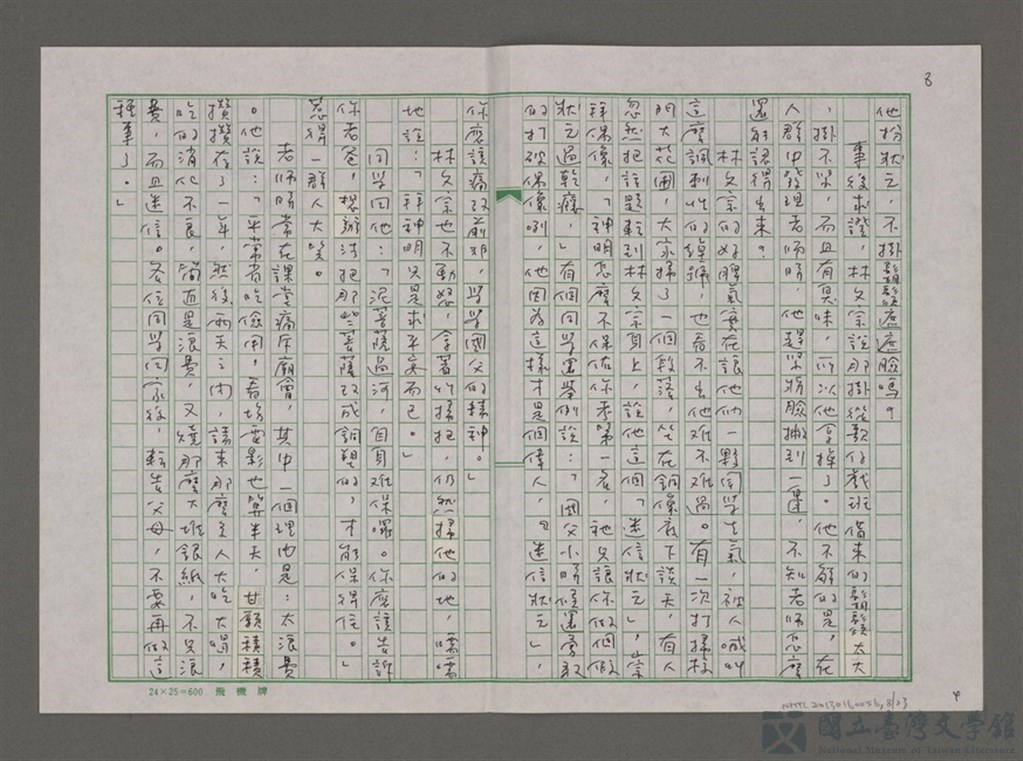 8
他扮狀元，不掛鬍鬚遮遮臉嗎？
事後求證，林文宗說那掛從歌仔戲班借來的鬍鬚太大
，掛不緊，而且有臭味，所以他拿掉了。他不解的是，在
人群中發現老師時，他趕緊將臉撇到一邊，不知老師怎麼
還能認得出來？
林文宗的好脾氣實在讓他們一夥同學生氣，被人喊叫
這麼諷刺性的綽號，也看不出他難不難過。有一次打掃校
門大花圃，大家掃了一個段落，坐在銅像底下談天，有人
忽然把話題轉到林文宗身上，說他這個「迷信狀元」，崇
拜偶像，「神明怎麼不保佑你考第一名，祂只讓你做個假
狀元過乾癮，」有個同學還舉例說：「國父小時候還勇敢
的打破偶像咧，他因為這樣才是個偉人，『迷信狀元』，
你應該痛改前非，學學國父的精神。」
林文宗也不動怒，拿著竹掃把，仍然掃他的地，喏喏
地說：「拜神明只是求平安而已。」
同學回他：「泥菩薩過河，自身難保喔。你應該告訴
你老爸，想辦法把那些菩薩改成銅塑的，才能保得住。」
惹得一群人大笑。
老師時常在課堂痛斥廟會，其中一個理由是：太浪費
。他說：「平常省吃儉用，看場電影也算半天，甘願積積
攢攢存了一年，然後兩天之內，請來那麼多人大吃大喝，
吃的消化不良，簡直是浪費，又燒那麼大堆銀紙，不只浪
費，而且迷信。各位同學回家後，轉告父母，不要再做這
種事了。」
24×25=600 飛機牌
4
NMTL20130160056,8/23
國立臺灣文學館
National Museum of Taiwan Literature